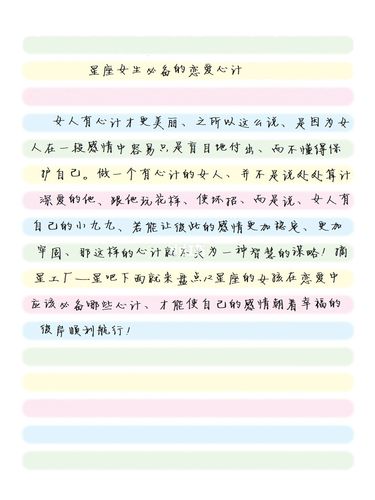 星座女生必备的恋爱心计
女人有心计才更美丽、之所以这么说、是因为女
人在一段感情中容易只是盲目地付出、而不懂得保
护自己。做一个有心计的女人、并不是说处处算计
深爱的他、跟他玩花样、使坏招、而是说、女人有
自己的小九九、若能让彼此的感情更加稳定、更加
牢固、那这样的心计就不失为一种智慧的谋略！摘
星工厂—星吧下面就来盘点12星座的女孩在恋爱中
应该必备哪些心计、才能使自己的感情朝着幸福的
彼岸顺利航行！